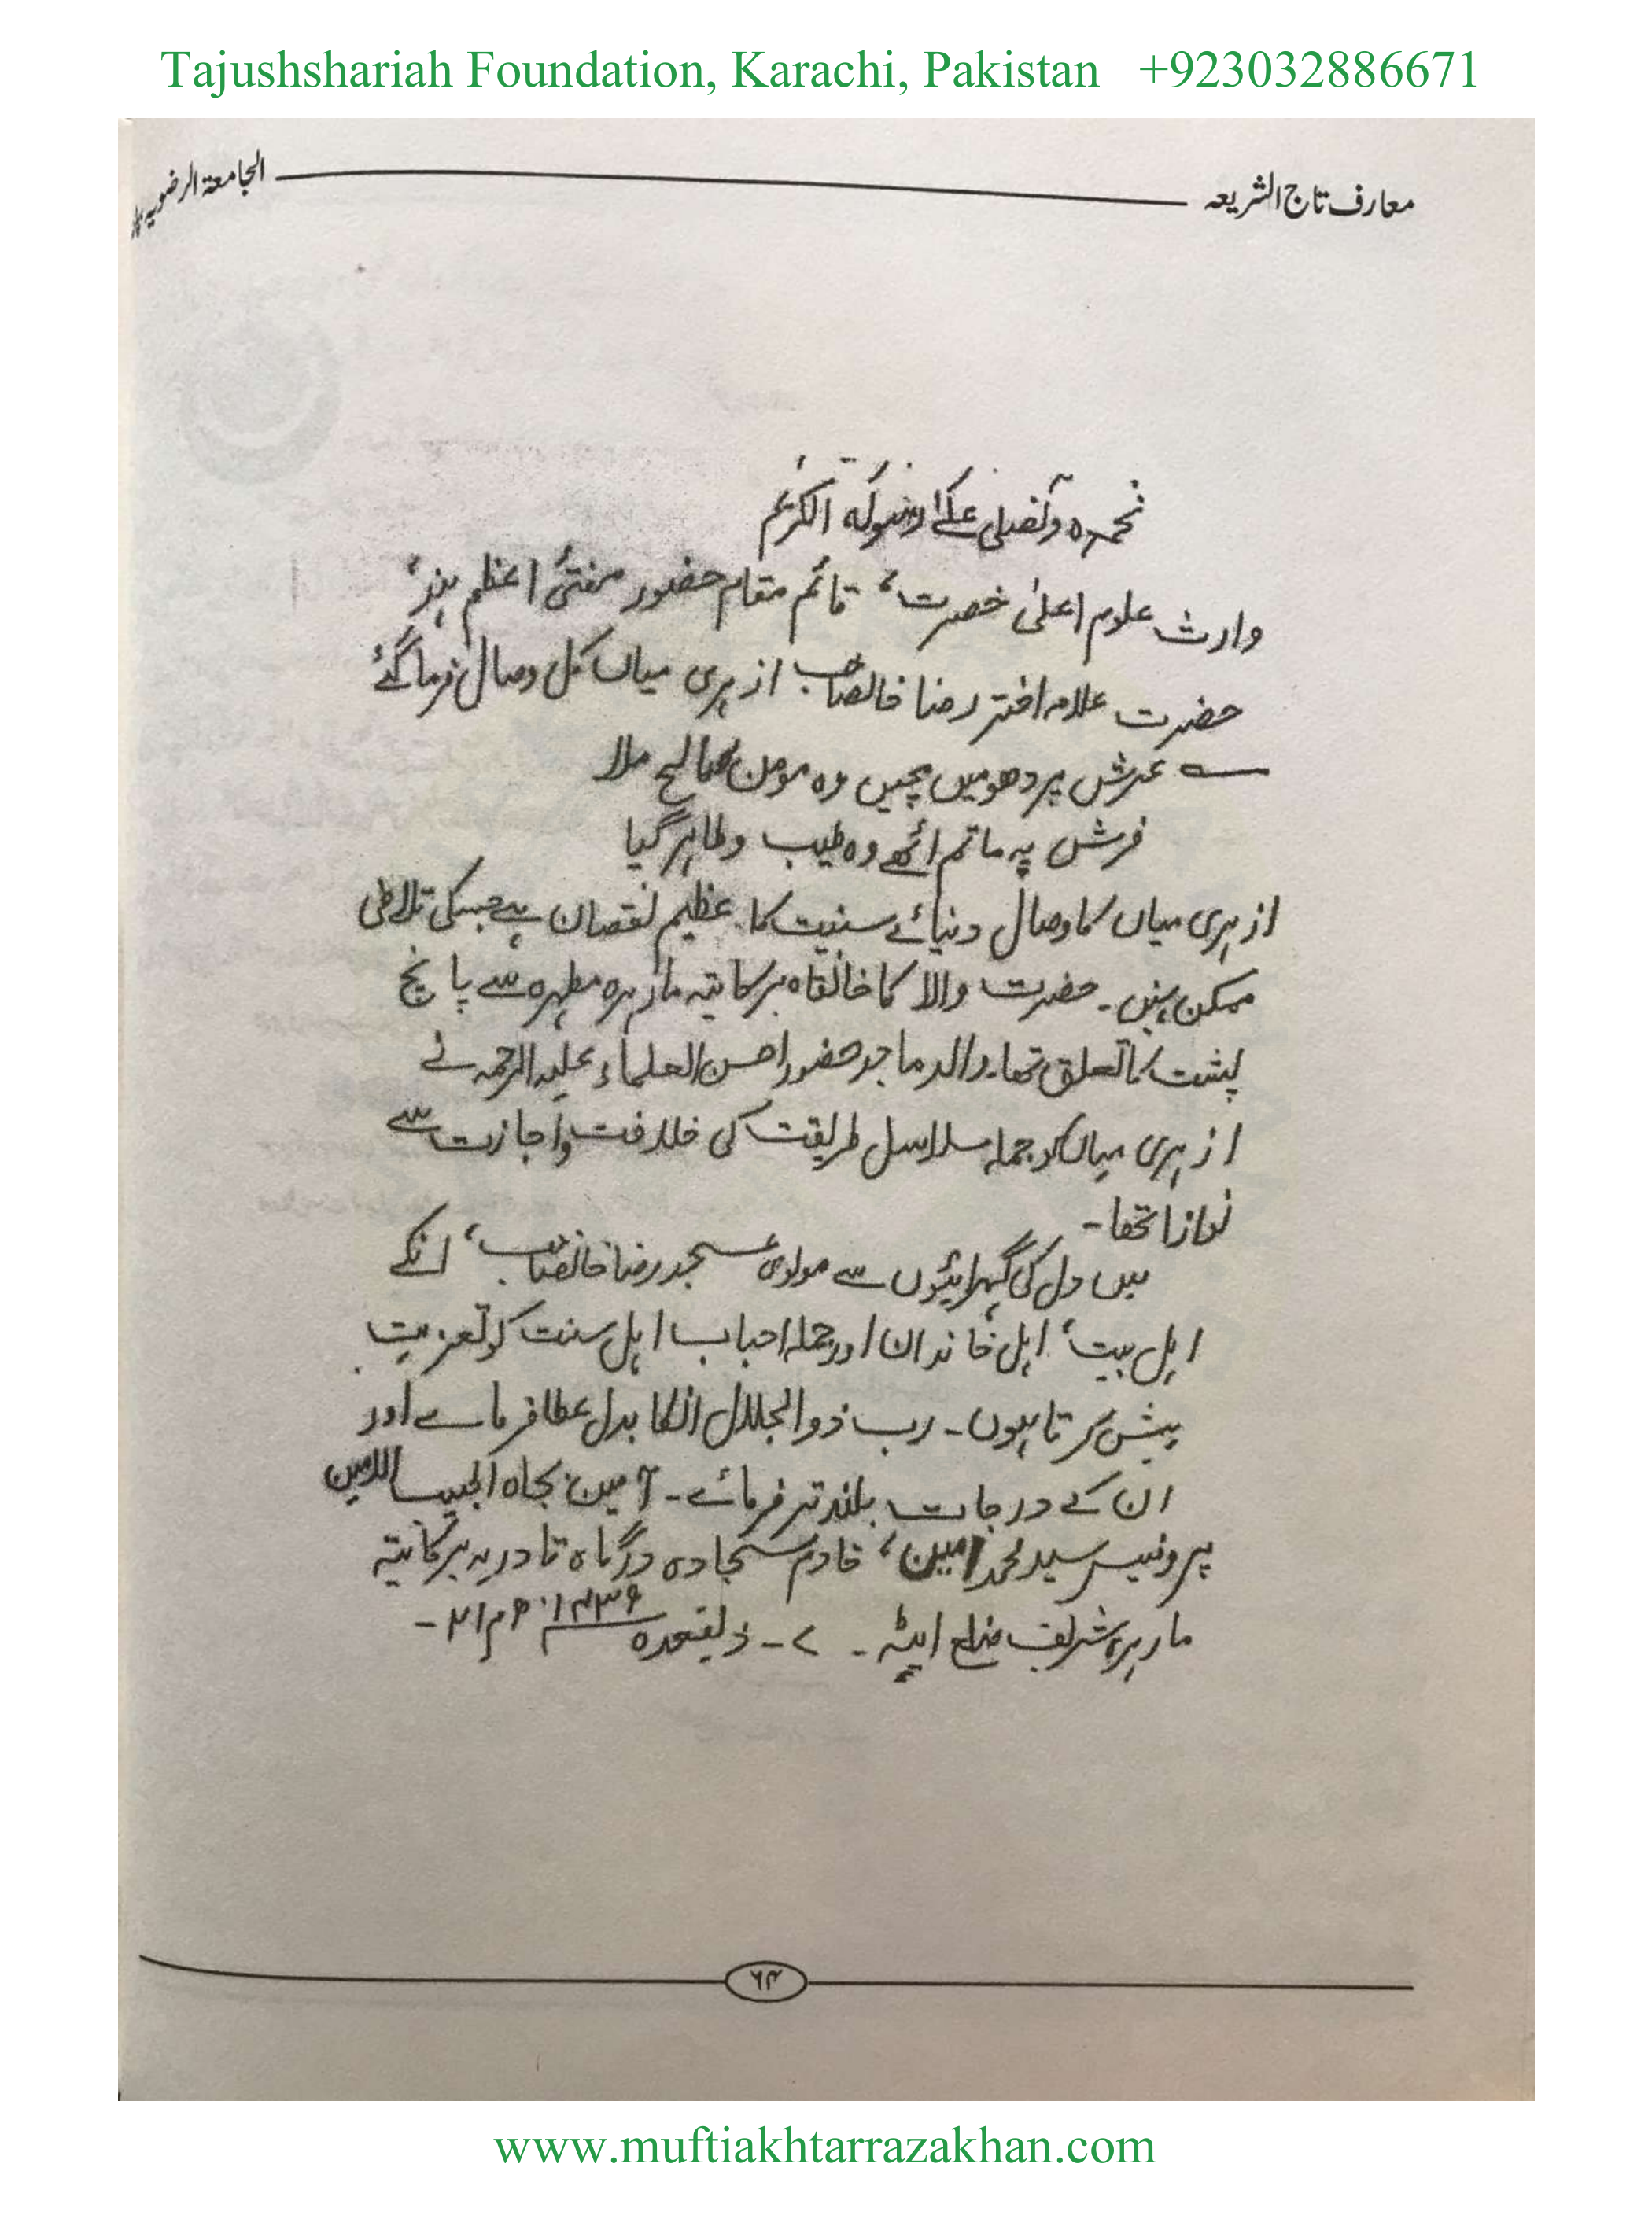 Tajushshariah Foundation, Karachi, Pakistan +923032886671
معارف تاج الشریعہ
الجامعۃ الرضویہ
نحمدہ ونصلی علیٰ رسولہ الکریم
وارث علوم اعلیٰ حضرت، قائم مقام حضور مفتیٔ اعظم ہند،
حضرت علامہ اختر رضا خانصاحب ازہری میاں کل وصال فرما گئے
عرش پر دھومیں مچیں وہ مومن صالح ملا
فرش پہ ماتم اٹھے وہ طیب و طاہر گیا
ازہری میاں کا وصال دنیائے سنیت کا عظیم نقصان ہے جسکی تلافی
ممکن نہیں۔ حضرت والا کا خانقاہ برکاتیہ مارہرہ مطہرہ سے پانچ
پشت کا تعلق تھا۔ والد ماجد حضور احسن العلماء علیہ الرحمہ نے
ازہری میاں کو جملہ سلاسل طریقت کی خلافت و اجازت سے
نوازا تھا۔
میں دل کی گہرائیوں سے مولوی عسجد رضا خانصاحب، انکے
اہل بیت، اہل خاندان اور جملہ احباب اہل سنت کو تعزیت
پیش کرتا ہوں۔ رب ذوالجلال انکا بدل عطا فرمائے اور
ان کے درجات بلند تر فرمائے۔ آمین بجاہ الحبیب الامین
پروفیسر سید محمد امین، خادم سجادہ درگاہ قادریہ برکاتیہ
مارہرہ شریف ضلع ایٹہ۔ ۷- ذیقعدہ ۱۴۳۹
۶۴
www.muftiakhtarrazakhan.com